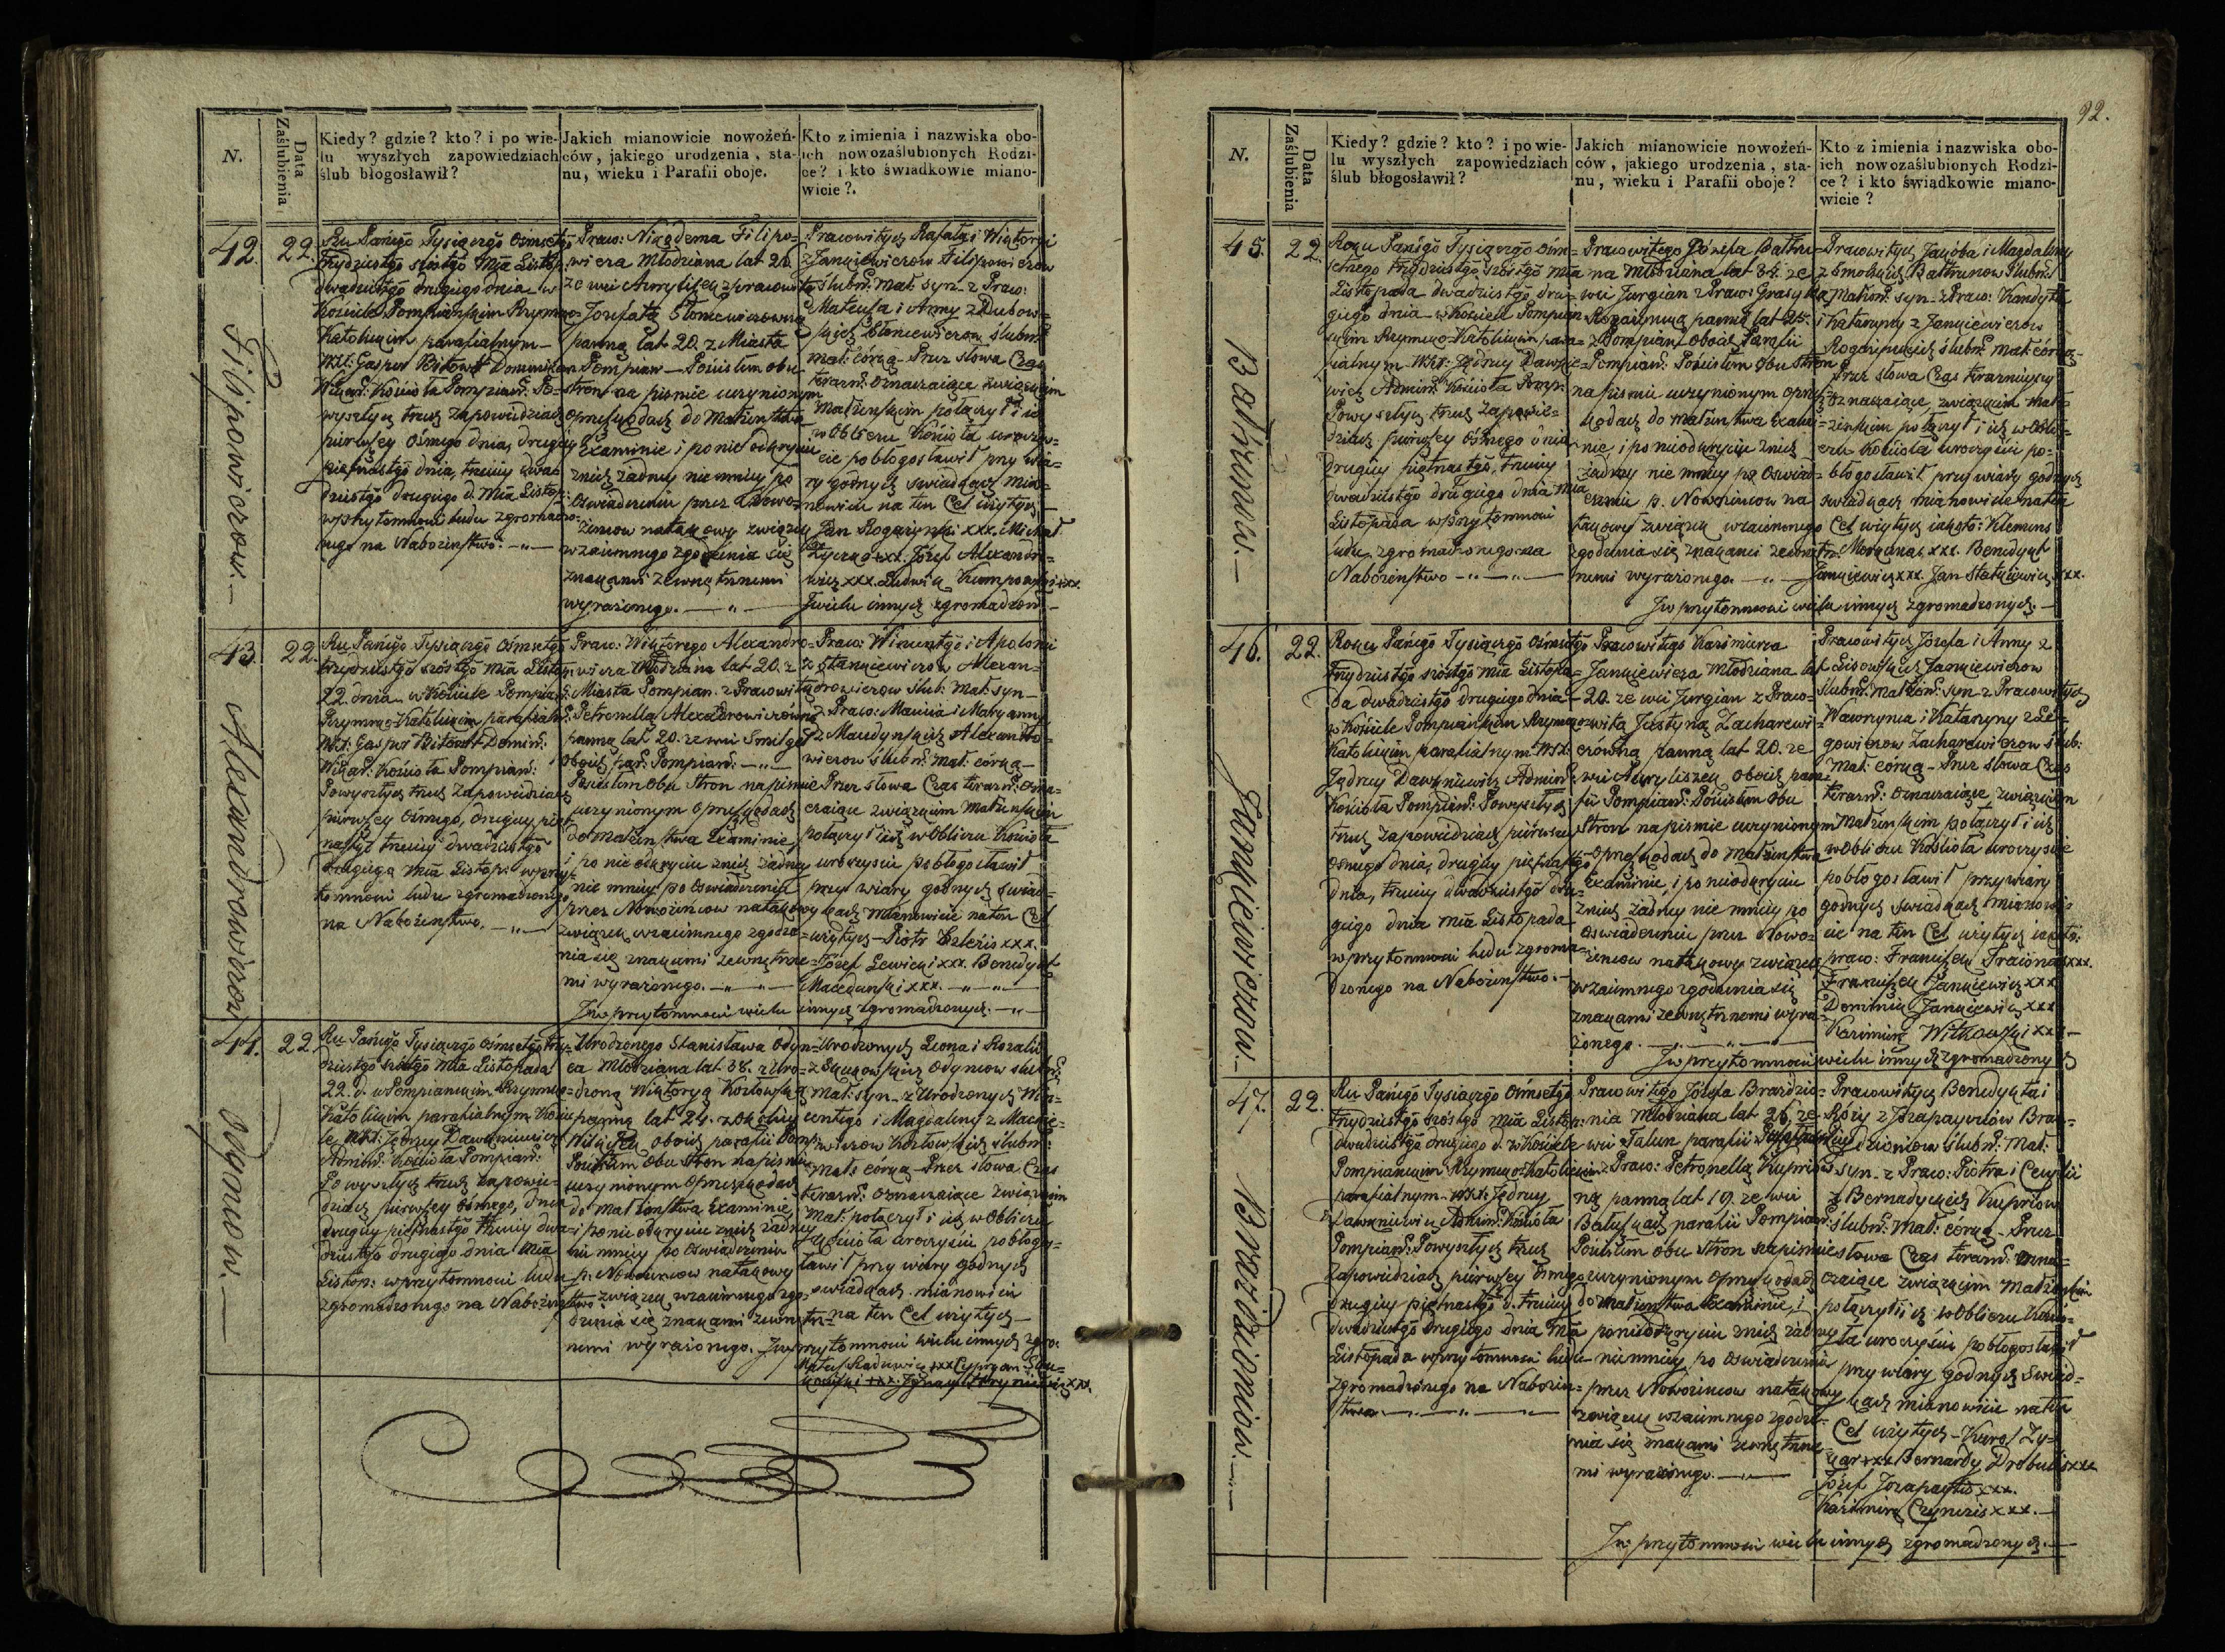 92.
N.
Data
Zaślubienia
Kiedy? gdzie? kto? i po wie-
lu wyszłych zapowiedziach
ślub błogosławił?
Jakich mianowicie nowożeń-
ców, jakiego urodzenia, sta-
nu, wieku i Parafii oboje.
Kto z imienia i nazwiska obo-
ich nowozaślubionych Rodzi-
ce? i kto świadkowie miano-
wicie?.
42.
22.
Filipowiczow.—
Ru Pańgo Tysiącżgo Ośmsetgo
trzydziestgo szóstgo Mia Listop:
dwadziestgo drugiego dnia w
Kościele Pompiańskim Rzymsko-
Katolickim parafialnym—
Kościoła Pompiań: Po-
wyszłych trzech Zapowiedziach
pierwszey Ósmego dnia, drugiey
piętnastgo dnia, trzeciey dwa-
dziestgo drugiego d. Mia Listop:
w przytomności ludu zgromadzo-
nego na Nabożeństwo.
Praco: Nikodema Filipo-
wicza Młodziana lat 20.
ze wsi z Pracowitą
Jozefatą
panną lat 20. z Miasta
Pompian — Poścłem obu
stron na pismie uczynionym
o przeszkodach do Małżeństwa
Examinie i po nie odkryciu
znich żadney nie mniey po
Oświadczeniu przez Nowo-
żencow na takowy związek
wzaiemnego zgodzenia się
znakami zewnętrznemi
wyrażonego.
Pracowitych Rafała i Wiktoryi
z Jankiewiczow Filipowiczow
ślubn: mał: syn z Praco:
Mateusza i Anny z Dubow-
skich ślubn:
mał: córką — Przez słowa Czas
terazn: oznaczaiące związkiem
Małżenskim połączył i ich
w Obliczu Kościoła uroczy-
ście pobłogosławił przy wia-
ry godnych swiadkach mia-
nowicie na ten Cel użytych
Jan Rogażynski xxx. Michał
xxx. Jozef Alexandro-
wicz xxx. Ludwik xxx.
I wielu innych zgromadzon:
43.
22.
Alexandrowiczow
Ru Pańgo Tysiącżgo Ośmsetgo
trzydziestgo szóstgo Mia Listop:
22. dnia w Kościele Pompiań:
Rzymsko-Katolickim parafialn:
Kościoła Pompiań:
Powyszłych trzech Zapowiedziach
pierwszey Ósmego, drugiey pięt-
nastgo trzeciey dwadziestgo
drugiego Mia Listop: w przy-
tomności ludu zgromadzonego
na Nabożeństwo.
Praco: Wiktorego Alexandro-
wicza Młodziana lat 20. z
Miasta Pompian. z Pracowitą
Petronellą Alexandrowiczówną
panną lat 20. ze wsi Smilgiel
oboich par: Pompiań:
Poścłem obu Stron na pismie
uczynionym o przeszkodach
do Małżenstwa Examinie,
i po nie odkryciu znich żadney
nie mniey po Oświadczeniu
przez Nowożencow na takowy
związek wzaiemnego zgodze-
nia się znakami zewnętrzne-
mi wyrażonego.
Praco: Wincentgo i Apolonii
z Stankiewiczow Alexan-
drowiczow ślub: mał: syn—
z Praco: Macieia i Maryanny
z Alexandro-
wiczow ślubn: mał: córką—
Przez słowa Czas terazn: Ozna-
czaiące związkiem Małżenskim
połączył i ich w Obliczu Kościoła
uroczyście pobłogosławił
przy wiary godnych świad-
kach mianowicie na ten Cel
użytych — Piotr xxx.
Józef Lewicki xxx. Benedykt
xxx.
I w przytomności wielu innych zgromadzonych.
44.
22.
Odyncow.—
Ru Pańgo Tysiącżgo Ośmsetgo trzy-
dziestgo szóstgo Mia Listopada
22. d. w Pompianskim Rzymsko-
Katolickim parafialnym Koście-
le, WXt: Jędrzey Dawkniewicz
Admin: Kościoła Pompiań:
Powyszłych trzech zapowie-
dziach pierwszey ósmego, dnia
drugiey piętnastgo trzeciey dwa-
dziestgo drugiego dnia Mia
Listop: w przytomności ludu
zgromadzonego na Nabożeństwo
Urodzonego Stanisława Odyn-
ca Młodziana lat 38. z Uro-
dzoną Wiktoryą Kozłowską
panną lat 24. z Okolicy
oboich parafii Pomp:
Poścłem obu Stron na pismie
uczynionym o przeszkodach
do Małżenstwa Examinie,
i po nie odkryciu znich żadney
nie mniey po Oświadczeniu
p. Nowożencow na takowy
związek wzaiemnego zgo-
dzenia się znakami zewnętrz-
nemi wyrażonego.
Urodzonych Leona i Rozalii
z Odyncow ślubn:
mał: syn — z Urodzonych Win-
centego i Magdaleny z Mackie-
wiczow Kozłowskich ślubn:
mał: córką — Przez słowa Czas
terazn: oznaczaiące związkiem
Mał: połączył i ich w Obliczu
Kościoła uroczyście pobłogo-
ławił przy wiary godnych
swiadkach mianowicie
na ten Cel użytych—
I w przytomności wielu innych zgro.
Mateusz Radzewicz xxx Cypryan
xxx. Ignacy xxx.
N.
Data
Zaślubienia
Kiedy? gdzie? kto? i po wie-
lu wyszłych zapowiedziach
ślub błogosławił?
Jakich mianowicie nowożeń-
ców, jakiego urodzenia, sta-
nu, wieku i Parafii oboje?
Kto z imienia i nazwiska obo-
ich nowozaślubionych Rodzi-
ce? i kto świadkowie miano-
wicie?
45.
22.
Baltrunow.—
Roku Pańgo Tysiącżgo Ośm-
setnego trzydziestgo szóstgo Mia
Listopada dwadziestgo dru-
giego dnia — w Kościele Pompian-
skim Rzymsko-Katolickim para-
fialnym — WXt: Jędrzey Dawknie-
wicz Admin: Kościoła Pomp:
Powyszłych trzech Zapowie-
dziach pierwszey Ósmego dnia
drugiey piętnastgo, trzeciey
dwadziestgo drugiego dnia Mia
Listopada w przytomności
ludu zgromadzonego na
Nabożeństwo
Pracowitego Józefa Baltru-
na Młodziana lat 35. ze
wsi Jurgian z Praco: Grasyldą
Rogażynską panną lat 25.
z Pompian Oboich Parafii
Pompiań: Poścłem Obu Stron
na pismie uczynionym o przesz-
kodach do Małżenstwa Exami-
nie, i po nieodkryciu znich
żadney nie mniey po Oświad-
czeniu p. Nowożencow na
takowy związek wzaiemnego
zgodzenia się znakami zewnętrz-
nemi wyrażonego.
Pracowitych Jakóba i Magdaleny
z Smolskich Baltrunow Ślubn:
Małżon: syn — z Praco: Kandyta
i Katarzyny z Jankiewiczow
Rogażynskich ślubn: mał: córką—
Przez słowa Czas teraznieyszy
oznaczaiące, związkiem Mał-
żenskim połączył i ich w Obli-
czu Kościoła uroczyście po-
błogosławił przy wiary godnych
swiadkach mianowicie na ten
Cel użytych iakoto: Klemens
xxx. Benedykt
Jankiewicz xxx. Jan Statkiewicz xxx.
I w przytomności wielu innych zgromadzonych.—
46.
22.
Jankiewiczow.—
Roku Pańgo Tysiącżgo Ośmsetgo
trzydziestgo szóstgo Mia Listopa-
da dwadziestgo drugiego dnia
w Kościele Pompianskim Rzymsko-
Katolickim parafialnym — WXt:
Jędrzey Dawkniewicz Admin:
Kościoła Pompiań: Powyszłych
trzech Zapowiedziach pierwszey
ósmego dnia, drugiey piętnastgo
dnia, trzeciey dwadziestgo dru-
giego dnia Mia Listopada
w przytomności ludu zgroma-
dzonego na Nabożeństwo.—
Pracowitego Kazimierza
Jankiewicza Młodziana lat
20. ze wsi Jurgian z Praco-
witą Justyną Zacharewi-
czówną panną lat 20. ze
wsi oboich para-
fii Pompiań: Poścłem Obu
Stron na pismie uczynionym
o przeszkodach do Małżenstwa
Examinie, i po nieodkryciu
znich żadney nie mniey po
Oświadczeniu przez Nowo-
żencow na takowy związek
wzaiemnego zgodzenia się
znakami zewnętrznemi wyra-
żonego.
Pracowitych Józefa i Anny z
Lisowskich Jankiewiczow
Ślubn: Małżon: syn z Pracowitych
Wawrzynca i Katarzyny z Le-
gowiczow Zacharewiczow ślub:
Mał: córką — Przez słowa Czas
terazn: Oznaczaiące związkiem
Małżenskim połączył i ich
w Obliczu Kościoła uroczyście
pobłogosławił przy wiary
godnych swiadkach mianowi-
cie na ten Cel użytych iakoto:
praco: Franciszek xxx.
Franciszek Jankiewicz xxx
Dominik Jankiewicz xxx
Kazimierz Witkowski xxx—
I w przytomności wielu innych zgromadzonych
47.
22.
Brazdzioniow.—
Ru Pańgo Tysiącżgo Ośmsetgo
trzydziestgo szóstgo Mia Listop:
dwadziestgo drugiego d. w Kościele
Pompianskim Rzymsko-Katolickim
parafialnym — WXt: Jędrzey
Dawkniewicz Admin: Kościoła
Pompiań: Powyszłych trzech
Zapowiedziach pierwszey Ósmego
drugiey piętnastgo d. trzeciey
dwadziestgo drugiego dnia Mia
Listopada w przytomności ludu
zgromadzonego na Nabożeń-
stwo.
Pracowitego Józefa Brazdzio-
nia Młodziana lat 26. ze
wsi Talun parafii
z Praco: Petronellą Kupriow-
ną panną lat 19. ze wsi
parafii Pompiań:
Poścłem obu Stron na pismie
uczynionym o przeszkodach
do Małżenstwa Examinie, i
po nieodkryciu znich żadney
nie mniey po Oświadczeniu
przez Nowożencow na takowy
związek wzaiemnego zgodze-
nia się znakami zewnętrzne-
mi wyrażonego.
Pracowitych Benedykta i
Róży z Braz-
dzioniow Ślubn: Mał:
syn — z Praco: Piotra i Cecylii
z Kupriow
ślubn: Mał: córką — Przez
słowa Czas terazn: Ozna-
czaiące związkiem Małżenskim
połączył i ich w Obliczu Kościo-
ła uroczyście pobłogosławił
przy wiary godnych Swiad-
kach mianowicie na ten
Cel użytych — Karol Zy-
xxx Bernardy xxx
Józef xxx.
Kazimierz xxx.—
I w przytomności wielu innych zgromadzonych.